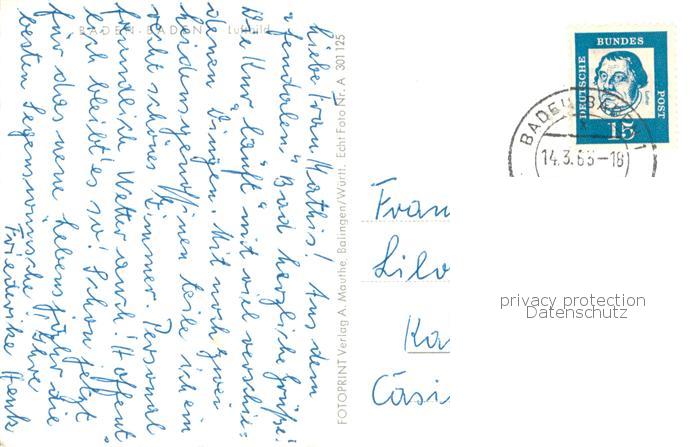 BADEN-BADEN Luftbild
Liebe Frau Mathis! Aus dem
"feudalen" Bad herzliche Grüße!
Die Kur "läuft" mit viel verschie=
denen Dingen. Mit noch zwei
Leidensgenossinnen teile ich ein
recht schönes Zimmer. Personal
freundlich, Wetter auch! Hoffent
lich bleibt es so! Schon jetzt
für das neue Lebensjahr die
besten Segenswünsche! Ihre
Friederike Henk
FOTOPRINT Verlag A. Mauthe, Balingen/Württ. Echt Foto Nr. A 301125
DEUTSCHE BUNDES POST
Luther
15
BADEN-BADEN 1
14.3.66-18
Frau
Lilo
Ka
Casi
privacy protection
Datenschutz